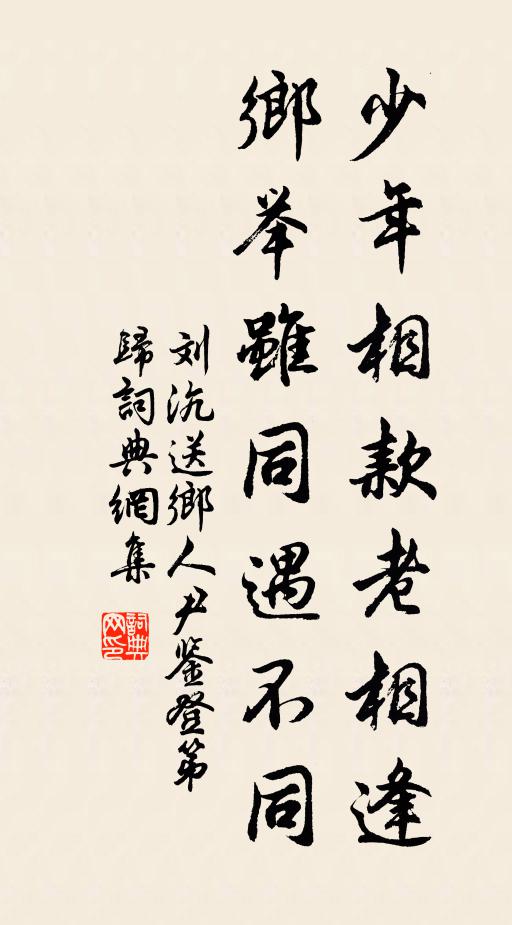 少年相款老相逢
鄉举雖同遇不同
刘沆送鄉人尹鉴登第
歸詞典網集
詞典网印